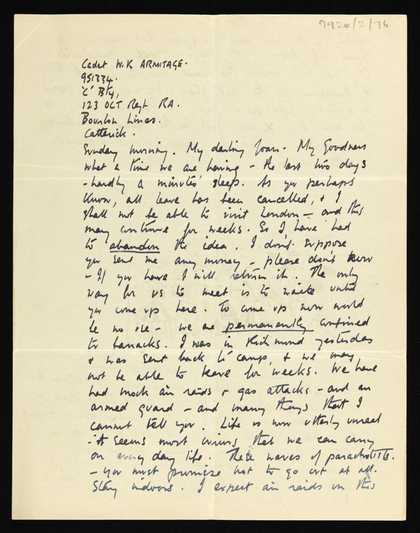 7920/2/76
Cadet W. K ARMITAGE.
951334.
'C' Bty,
123 OCT Regt RA.
Bourlon Lines.
Catterick.
Sunday morning. My darling Joan. My Goodness
what a time we are having - the last two days
- hardly a minutes' sleep. As you perhaps
know, all leave has been cancelled, & I
shall not be able to visit London - and this
may continue for weeks. So I have had
to abandon the idea. I don't suppose
you sent me any money - please don't
- If you have I will return it. The only
way for us to meet is to wait until
you come up here. To come up now would
be no use - we are permanently confined
to barracks. I was in Richmond yesterday
& was sent back to camp, & we may
not be able to leave for weeks. We have
had mock air raids & gas attacks - and an
armed guard - and many things that I
cannot tell you. Life is now utterly unreal
it seems most curious that we can carry
on every day life. These waves of parachutists.
- you must promise not to go out at all.
Stay indoors. I expect air raids on this